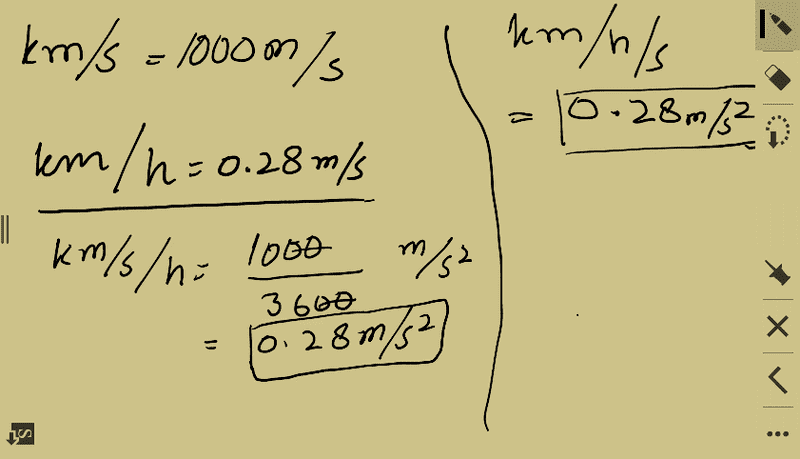 km/s = 1000 m/s
km/h = 0.28 m/s
km/s/h = 1000/3600 m/s²
= 0.28 m/s²
km/h/s
= 0.28 m/s²